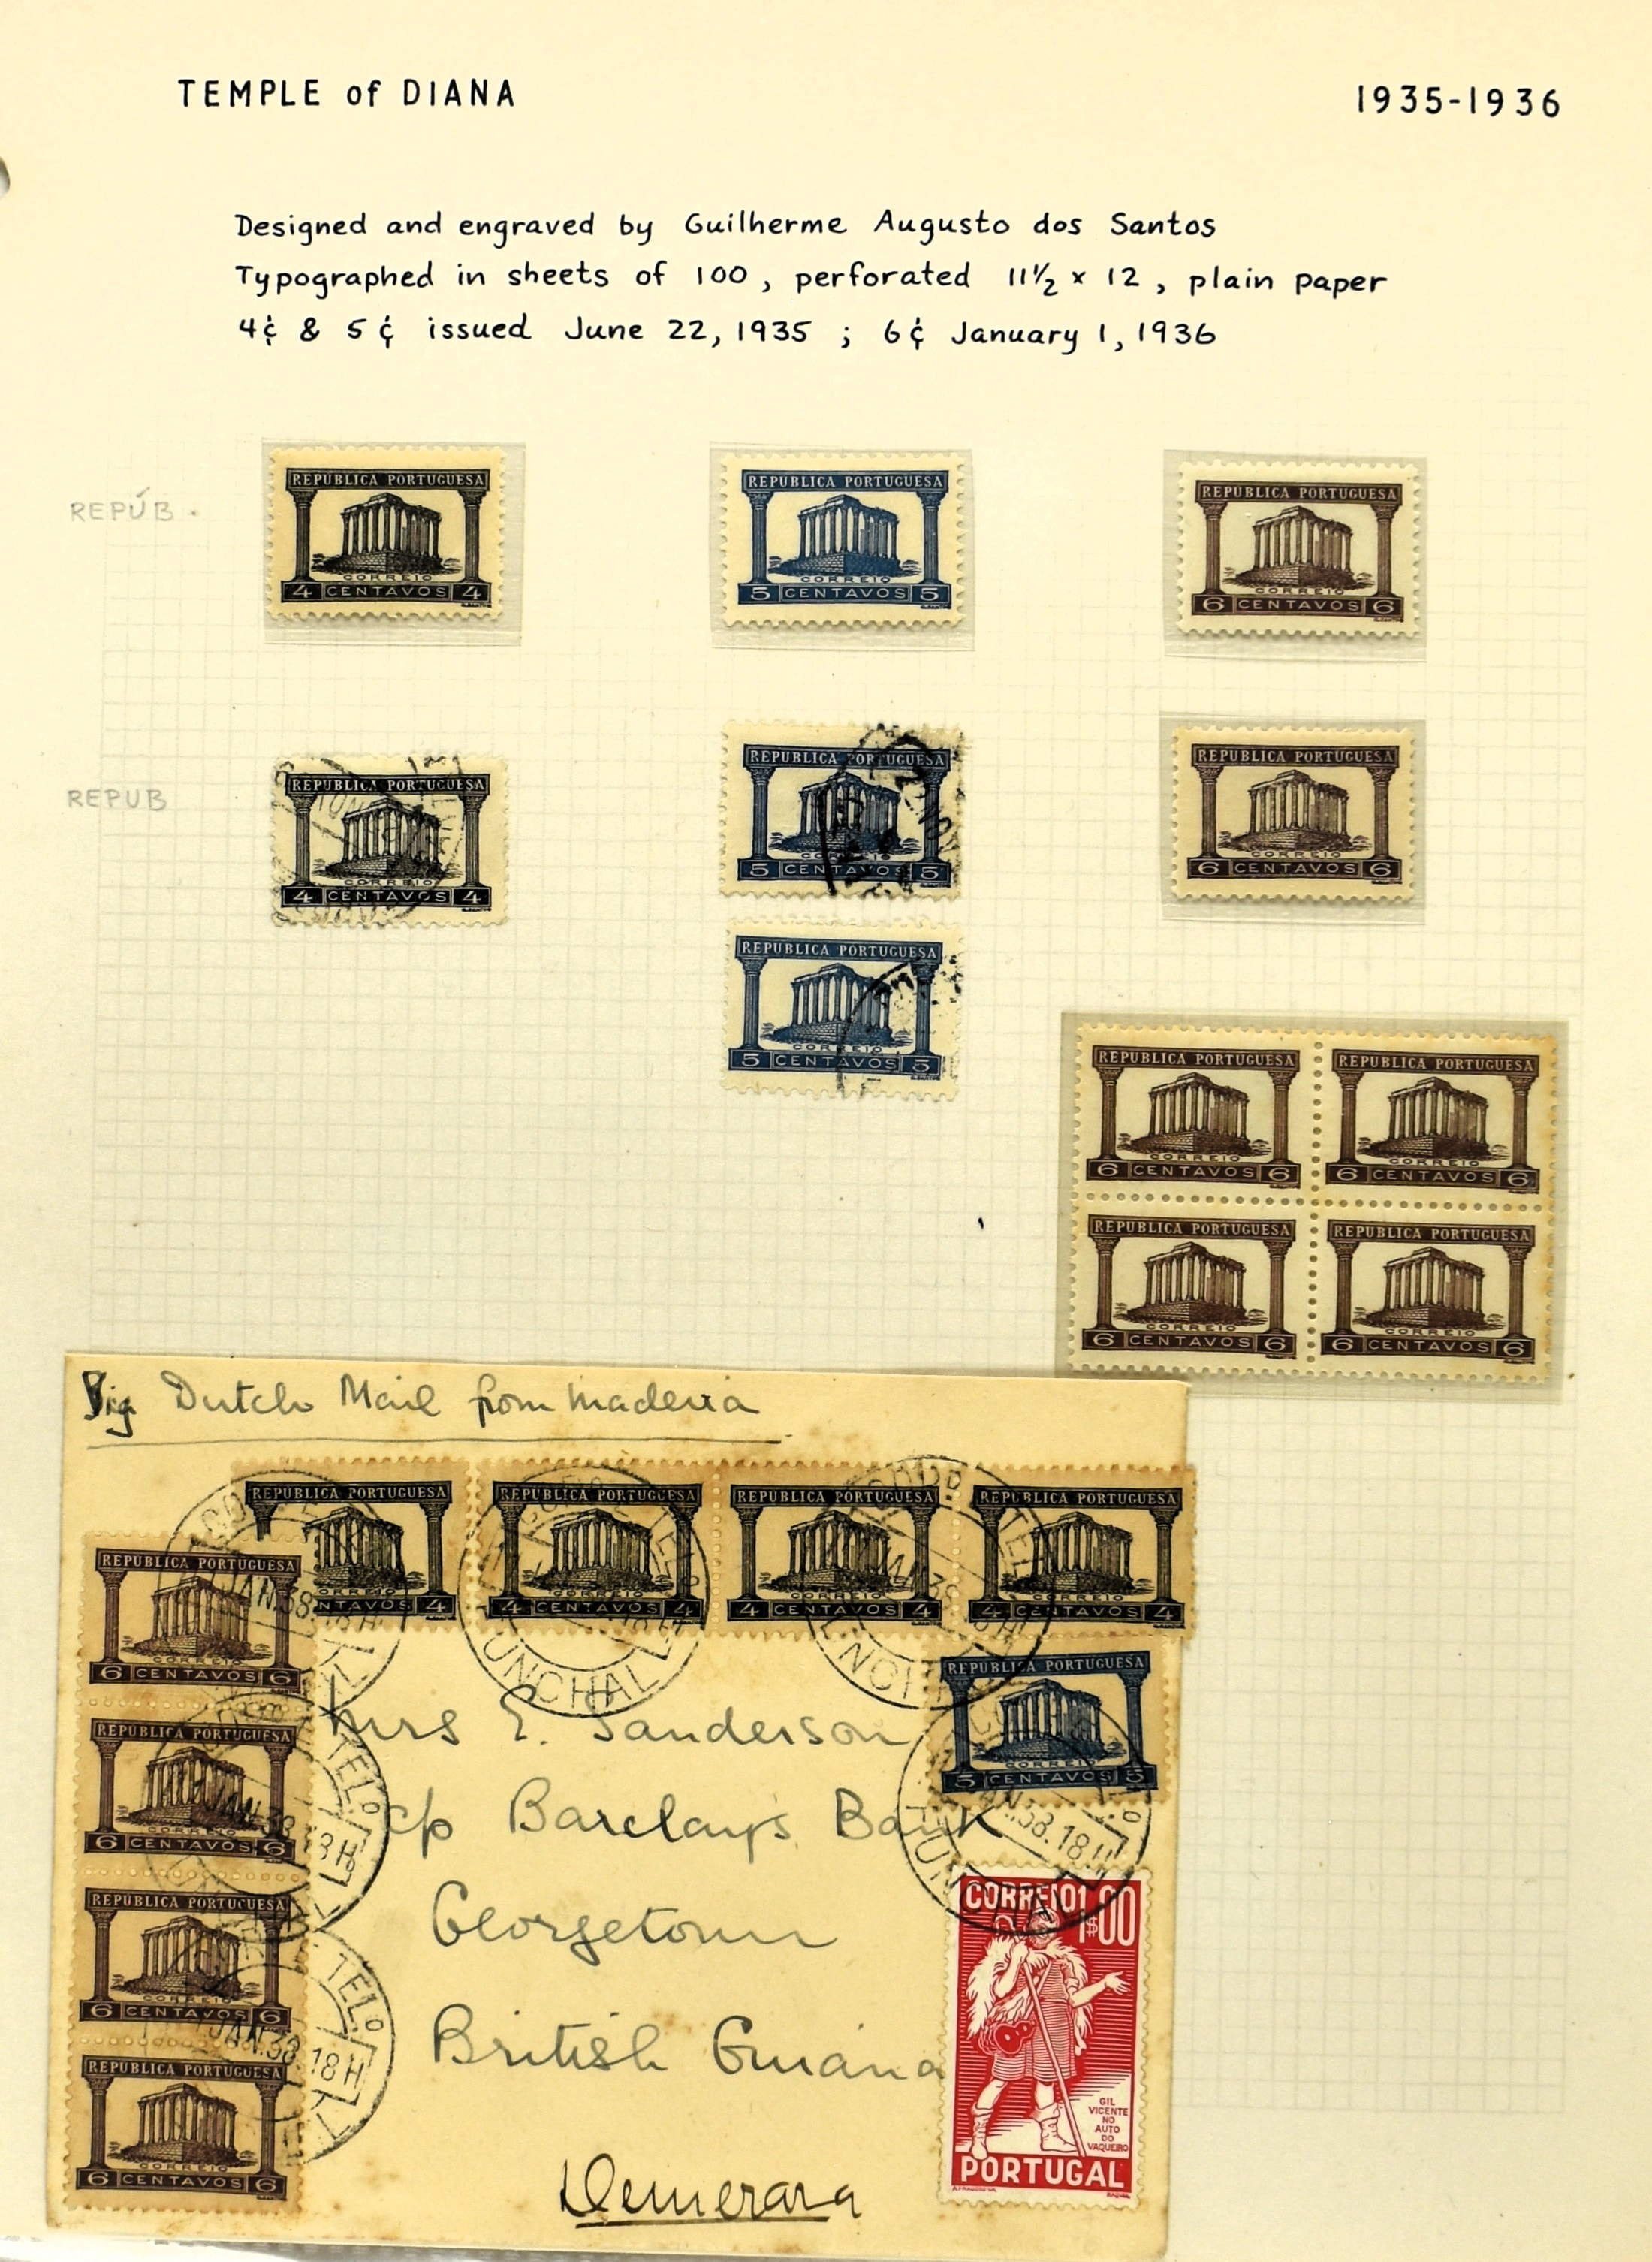 TEMPLE of DIANA 1935-1936
Designed and engraved by Guilherme Augusto dos Santos
Typographed in sheets of 100, perforated 11½ x 12, plain paper
4¢ & 5¢ issued June 22, 1935 ; 6¢ January 1, 1936
REPÚB.
REPÚBLICA PORTUGUESA
CORREIO
4 CENTAVOS 4
REPÚBLICA PORTUGUESA
CORREIO
5 CENTAVOS 5
REPÚBLICA PORTUGUESA
CORREIO
6 CENTAVOS 6
REPUB
REPUBLICA PORTUGUESA
CORREIO
4 CENTAVOS 4
REPUBLICA PORTUGUESA
CORREIO
5 CENTAVOS 5
REPUBLICA PORTUGUESA
CORREIO
6 CENTAVOS 6
REPUBLICA PORTUGUESA
CORREIO
5 CENTAVOS 5
REPUBLICA PORTUGUESA
CORREIO
6 CENTAVOS 6
REPUBLICA PORTUGUESA
CORREIO
6 CENTAVOS 6
REPUBLICA PORTUGUESA
CORREIO
6 CENTAVOS 6
REPUBLICA PORTUGUESA
CORREIO
6 CENTAVOS 6
Dutch Mail from Madeira
REPUBLICA PORTUGUESA
CORREIO
NTAVOS 4
REPUBLICA PORTUGUESA
CORREIO
4 CENTAVOS 4
REPUBLICA PORTUGUESA
CORREIO
4 CENTAVOS 4
REPUBLICA PORTUGUESA
CORREIO
4 CENTAVOS 4
REPUBLICA PORTUGUESA
CORREIO
6 CENTAVOS 6
REPUBLICA PORTUGUESA
CORREIO
6 CENTAVOS 6
REPUBLICA PORTUGUESA
CORREIO
6 CENTAVOS 6
REPUBLICA PORTUGUESA
CORREIO
6 CENTAVOS 6
JAN.38.18H
UNCHAL
REPUBLICA PORTUGUESA
CORREIO
5 CENTAVOS 5
Mrs E. Sanderson
c/o Barclays Bank
Georgetown
British Guiana
Demerara
CORREIO 1$00
GIL
VICENTE
NO
AUTO
DO
VAQUEIRO
PORTUGAL